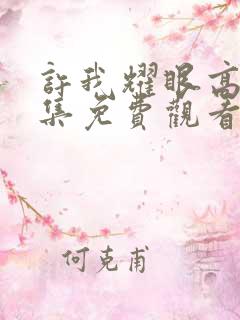 許我耀眼高
集免費觀看
何克甫